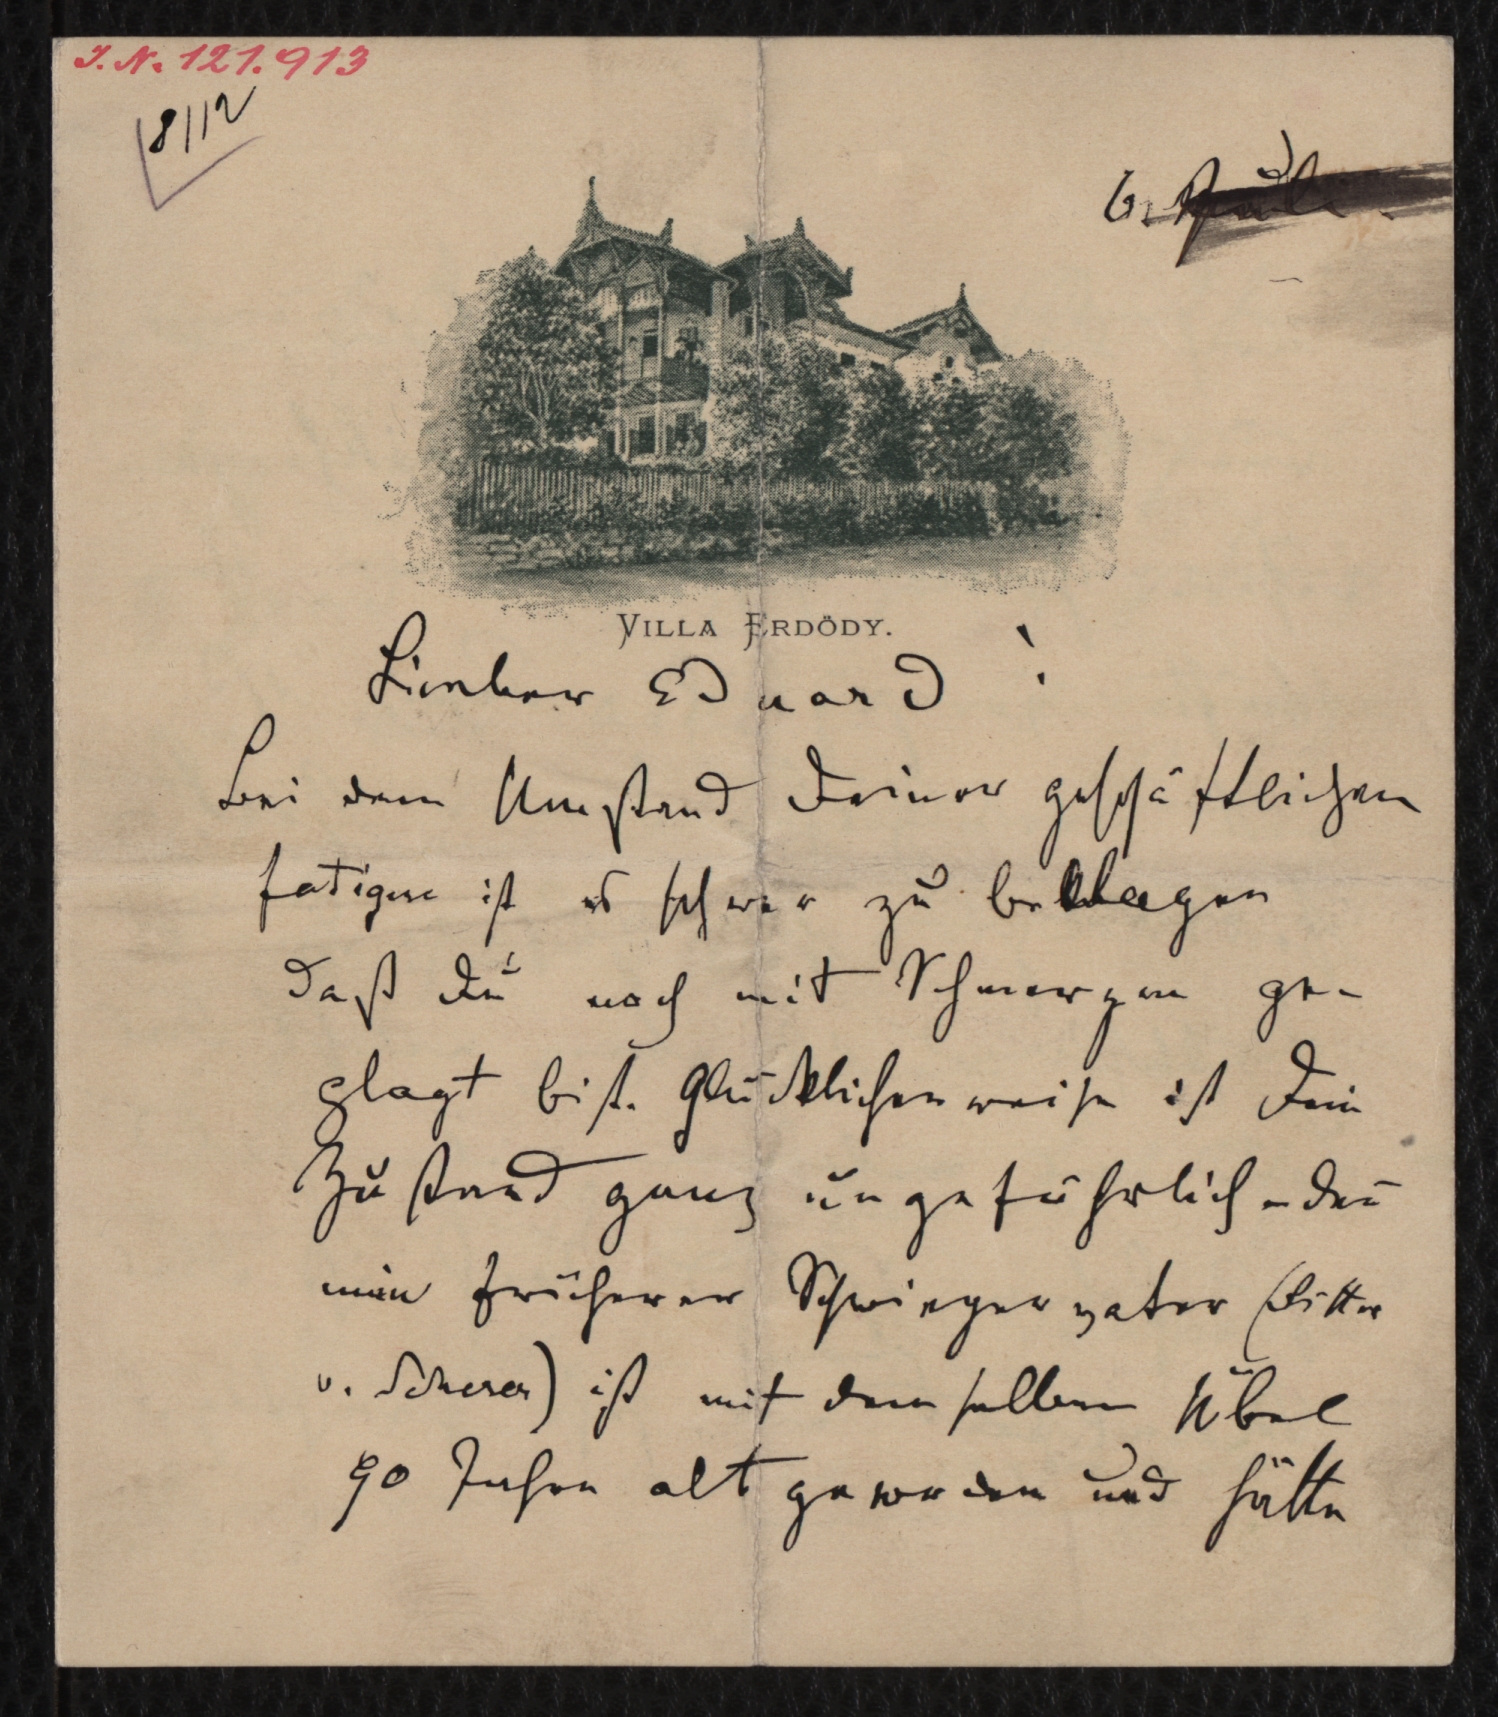 I. N. 121.913
8/12
6. Juli
VILLA ERDÖDY.
Lieber Eduard!
Bei dem Umstand Deiner geschäftlichen
fatigue ist es schwer zu beklagen
daß Du noch mit Schmerzen ge-
plagt bist. Glücklicherweise ist Dein
Zustand ganz ungefährlich – den̄
mein früherer Schwiegervater (Ritter
v. Scherer) ist mit demselben Übel
90 Jahre alt geworden und hätte